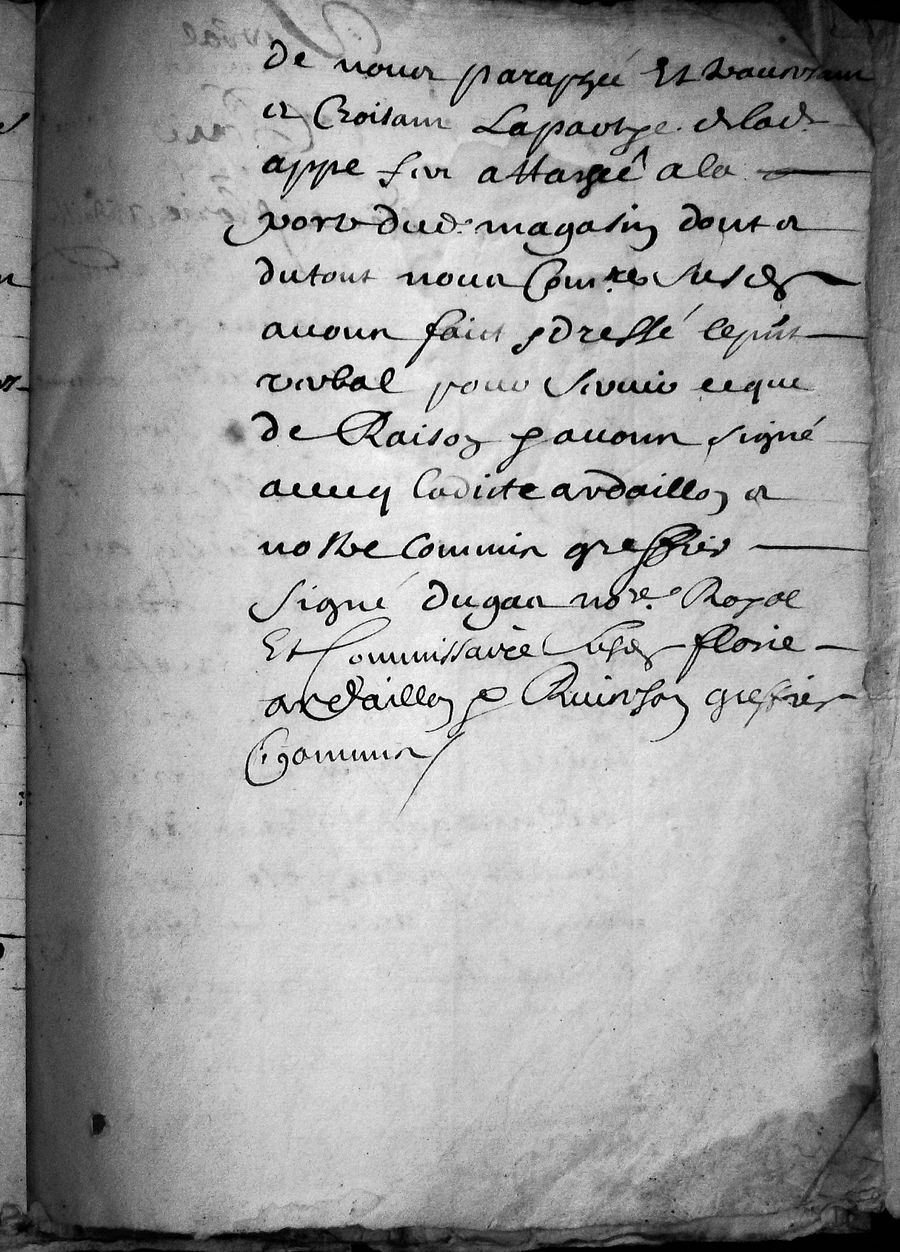 de nous paraphé Et
et Croisant La partye. de lad.
appe fin attaché a la
porte dud. magasin dont et
du tout nous Com.res susd
auons faict & dressé le pnt
verbal pour seruir ce que
de Raison & auons signé
auecq ladicte ardaillon et
nostre Commis greffier
signé dugas no.re Royal
Et Commissaire susd florie
ardaillon & greffier
Commis